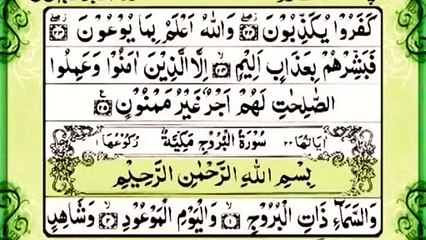 كَفَرُوْا يُكَذِّبُوْنَ ﴿۲۲﴾ وَاللّٰهُ اَعْلَمُ بِمَا يُوْعُوْنَ ﴿۲۳﴾
فَبَشِّرْهُمْ بِعَذَابٍ اَلِيْمٍ ﴿۲۴﴾ اِلَّا الَّذِيْنَ اٰمَنُوْا وَعَمِلُوا
الصّٰلِحٰتِ لَهُمْ اَجْرٌ غَيْرُ مَمْنُوْنٍ ﴿۲۵﴾
اٰيَاتُهَا ۲۲ سُوْرَةُ الْبُرُوْجِ مَكِّيَّةٌ رُكُوْعُهَا ۱
بِسْمِ اللّٰهِ الرَّحْمٰنِ الرَّحِيْمِ
وَالسَّمَآءِ ذَاتِ الْبُرُوْجِ ﴿۱﴾ وَالْيَوْمِ الْمَوْعُوْدِ ﴿۲﴾ وَشَاهِدٍ